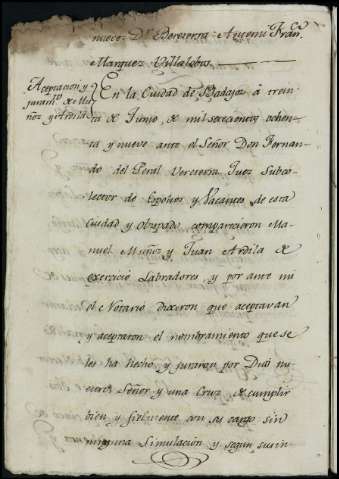 nueve Dr Berexena Antemi Fran.co
Marquez Villalobos
Aceptacion y
juram.to de Mu
ñoz y Ardila
En la Ciudad de Badajoz à trein
ta de Junio, de mil setecientos ochen
ta y nueve ante el Señor Don Fernan
do del Peral Verexena Juez Subco
lector de Expolios y Vacantes de esta
Ciudad y Obispado, comparecieron Ma
nuel Muñoz y Juan Ardila de
exercicio Labradores y por ante mi
el Notario dixeron que aceptavan
y aceptaron el nombramiento que se
les ha hecho y juraron por Dios nu
estro Señor y una Cruz de cumplir
bien y fielmente con su cargo sin
ninguna Simulación y segun su in